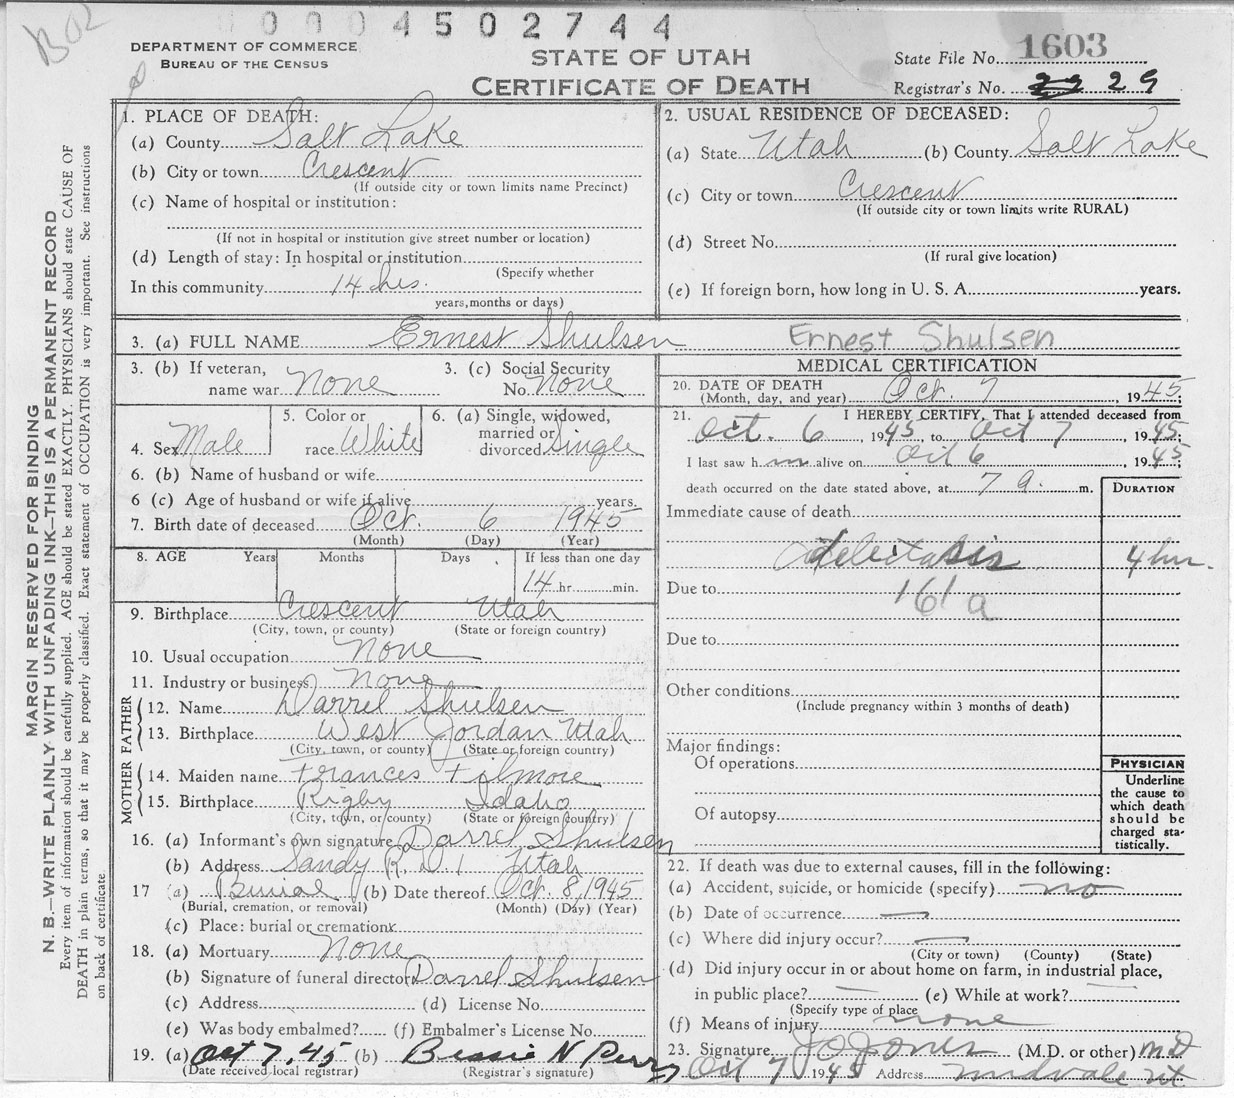 B02
0004502744
DEPARTMENT OF COMMERCE
BUREAU OF THE CENSUS
STATE OF UTAH
CERTIFICATE OF DEATH
State File No. 1603
Registrar's No. 29
MARGIN RESERVED FOR BINDING
N. B.—WRITE PLAINLY WITH UNFADING INK—THIS IS A PERMANENT RECORD
Every item of information should be carefully supplied. AGE should be stated EXACTLY. PHYSICIANS should state CAUSE OF
DEATH in plain terms, so that it may be properly classified. Exact statement of OCCUPATION is very important. See instructions
on back of certificate.
1. PLACE OF DEATH:
(a) County Salt Lake
(b) City or town Crescent
(If outside city or town limits name Precinct)
(c) Name of hospital or institution:
(If not in hospital or institution give street number or location)
(d) Length of stay: In hospital or institution
(Specify whether
In this community 14 hrs.
years, months or days)
2. USUAL RESIDENCE OF DECEASED:
(a) State Utah (b) County Salt Lake
(c) City or town Crescent
(If outside city or town limits write RURAL)
(d) Street No.
(If rural give location)
(e) If foreign born, how long in U. S. A. years.
3. (a) FULL NAME Ernest Shulsen Ernest Shulsen
3. (b) If veteran,
name war None
3. (c) Social Security
No. None
4. Sex Male
5. Color or
race White
6. (a) Single, widowed,
married or
divorced Single
6. (b) Name of husband or wife
6 (c) Age of husband or wife if alive years.
7. Birth date of deceased Oct. 6 1945
(Month) (Day) (Year)
8. AGE Years Months Days If less than one day
14 hr. min.
9. Birthplace Crescent Utah
(City, town, or county) (State or foreign country)
10. Usual occupation None
11. Industry or business None
FATHER
12. Name Darrel Shulsen
13. Birthplace West Jordan Utah
(City, town, or county) (State or foreign country)
MOTHER
14. Maiden name Frances Filmore
15. Birthplace Rigby Idaho
(City, town, or county) (State or foreign country)
16. (a) Informant's own signature Darrel Shulsen
(b) Address Sandy R. D. 1 Utah
17 (a) Burial (b) Date thereof Oct. 8, 1945
(Burial, cremation, or removal) (Month) (Day) (Year)
(c) Place: burial or cremation
18. (a) Mortuary None
(b) Signature of funeral director Darrel Shulsen
(c) Address (d) License No.
(e) Was body embalmed? (f) Embalmer's License No.
19. (a) Oct 7, 45 (b) Bessie N Perry
(Date received local registrar) (Registrar's signature)
MEDICAL CERTIFICATION
20. DATE OF DEATH
(Month, day, and year) Oct. 7, 1945;
21. I HEREBY CERTIFY, That I attended deceased from
Oct. 6, 1945 to Oct 7, 1945;
I last saw him alive on Oct 6, 1945;
death occurred on the date stated above, at 7 a. m.
DURATION
Immediate cause of death
4 hr.
Due to 161a
Due to
Other conditions
(Include pregnancy within 3 months of death)
Major findings:
Of operations
Of autopsy
PHYSICIAN
Underline
the cause to
which death
should be
charged sta-
tistically.
22. If death was due to external causes, fill in the following:
(a) Accident, suicide, or homicide (specify) no
(b) Date of occurrence —
(c) Where did injury occur? —
(City or town) (County) (State)
(d) Did injury occur in or about home on farm, in industrial place,
in public place? — (e) While at work? —
(Specify type of place
(f) Means of injury none
23. Signature J O Jones (M.D. or other) MD
Oct 7 1945 Address Midvale Ut